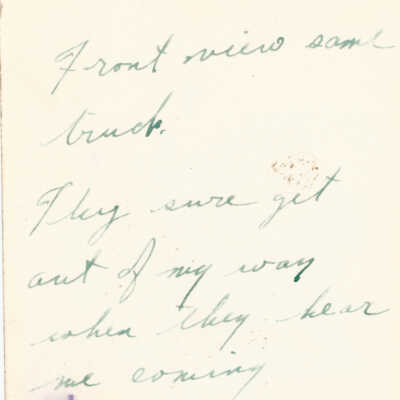 Front view same
truck.
They sure get
out of my way
when they hear
me coming